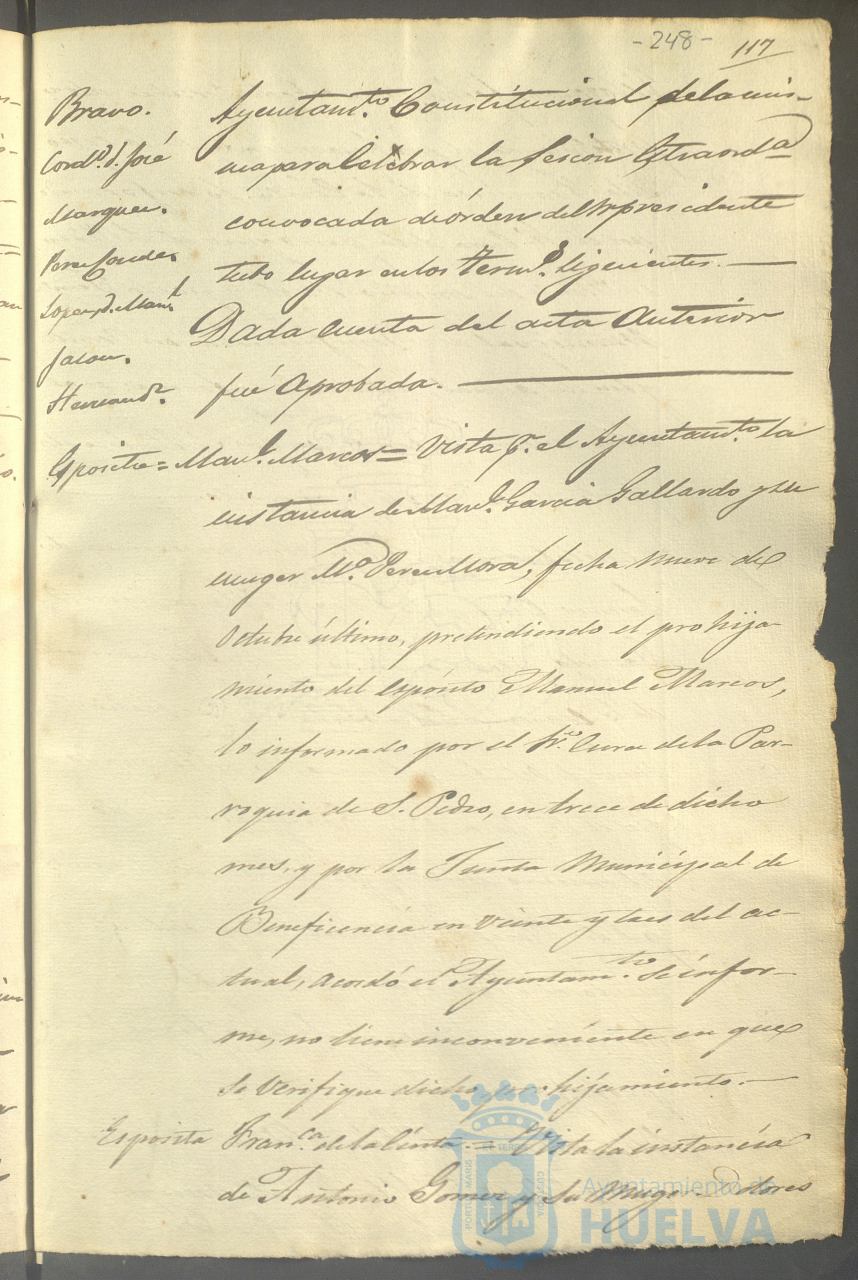 -248- 117
Bravo.
Cord.º d. José
Marquez.
Perez Conde.
Lopez d. Man.l
Jacon.
Hernand.z
Ayuntam.to Constitucional de la mis-
ma para celebrar la sesion Estraord.a
convocada de órden del Sr presidente
tubo lugar en los term.s siguientes. —
Dada cuenta del acta anterior
fué aprobada. —
Esposito = Man.l Marcos = Vista p.r el Ayuntam.to la
instancia de Man.l Garcia Gallardo y su
muger M.a Perez Mora, fecha nueve de
Octubre último, pretendiendo el prohija-
miento del espósito Manuel Marcos,
lo informado por el Sr. Cura de la Par-
roquia de S. Pedro, en trece de dicho
mes, y por la Junta Municipal de
Beneficencia en veinte y tres del ac-
tual, acordó el Ayuntam.to se infor-
me, no tiene inconveniente en que
se verifique dicho prohijamiento. —
Esposita Fran.ca de la Cinta = Vista la instancia
de Antonio Gomez y su muger Dolores
Ayuntamiento de
HUELVA